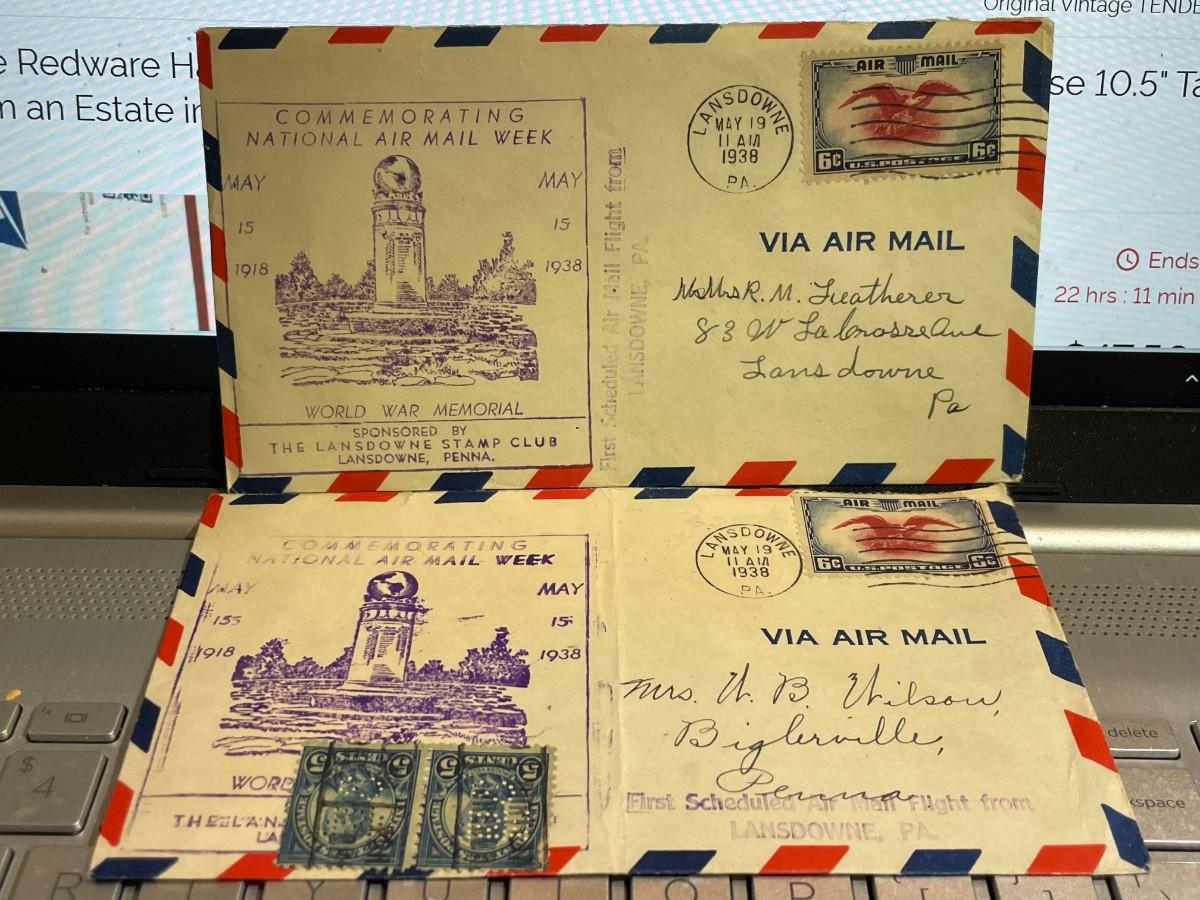 Original Vintage TENDE
e Redware Ha
m an Estate in
se 10.5" Ta
Ends
22 hrs : 11 min
COMMEMORATING
NATIONAL AIR MAIL WEEK
MAY MAY
15 15
1918 1938
WORLD WAR MEMORIAL
SPONSORED BY
THE LANSDOWNE STAMP CLUB
LANSDOWNE, PENNA.
First Scheduled Air Mail Flight from
LANSDOWNE, PA.
LANSDOWNE
MAY 19
11 AM
1938
PA.
AIR MAIL
6¢ 6¢
U.S. POSTAGE
VIA AIR MAIL
R. M. Featherer
83 W LaCrosse Ave
Lansdowne
Pa
COMMEMORATING
NATIONAL AIR MAIL WEEK
MAY MAY
15 15
1918 1938
WOR
THE LAN
LA
LANSDOWNE
MAY 19
11 AM
1938
PA.
AIR MAIL
6¢ 6¢
U.S. POSTAGE
VIA AIR MAIL
Mrs. W. B. Wilson,
Biglerville,
Penna
First Scheduled Air Mail Flight from
LANSDOWNE, PA.
5 5 5 5
delete
$
4
R Y U I O P